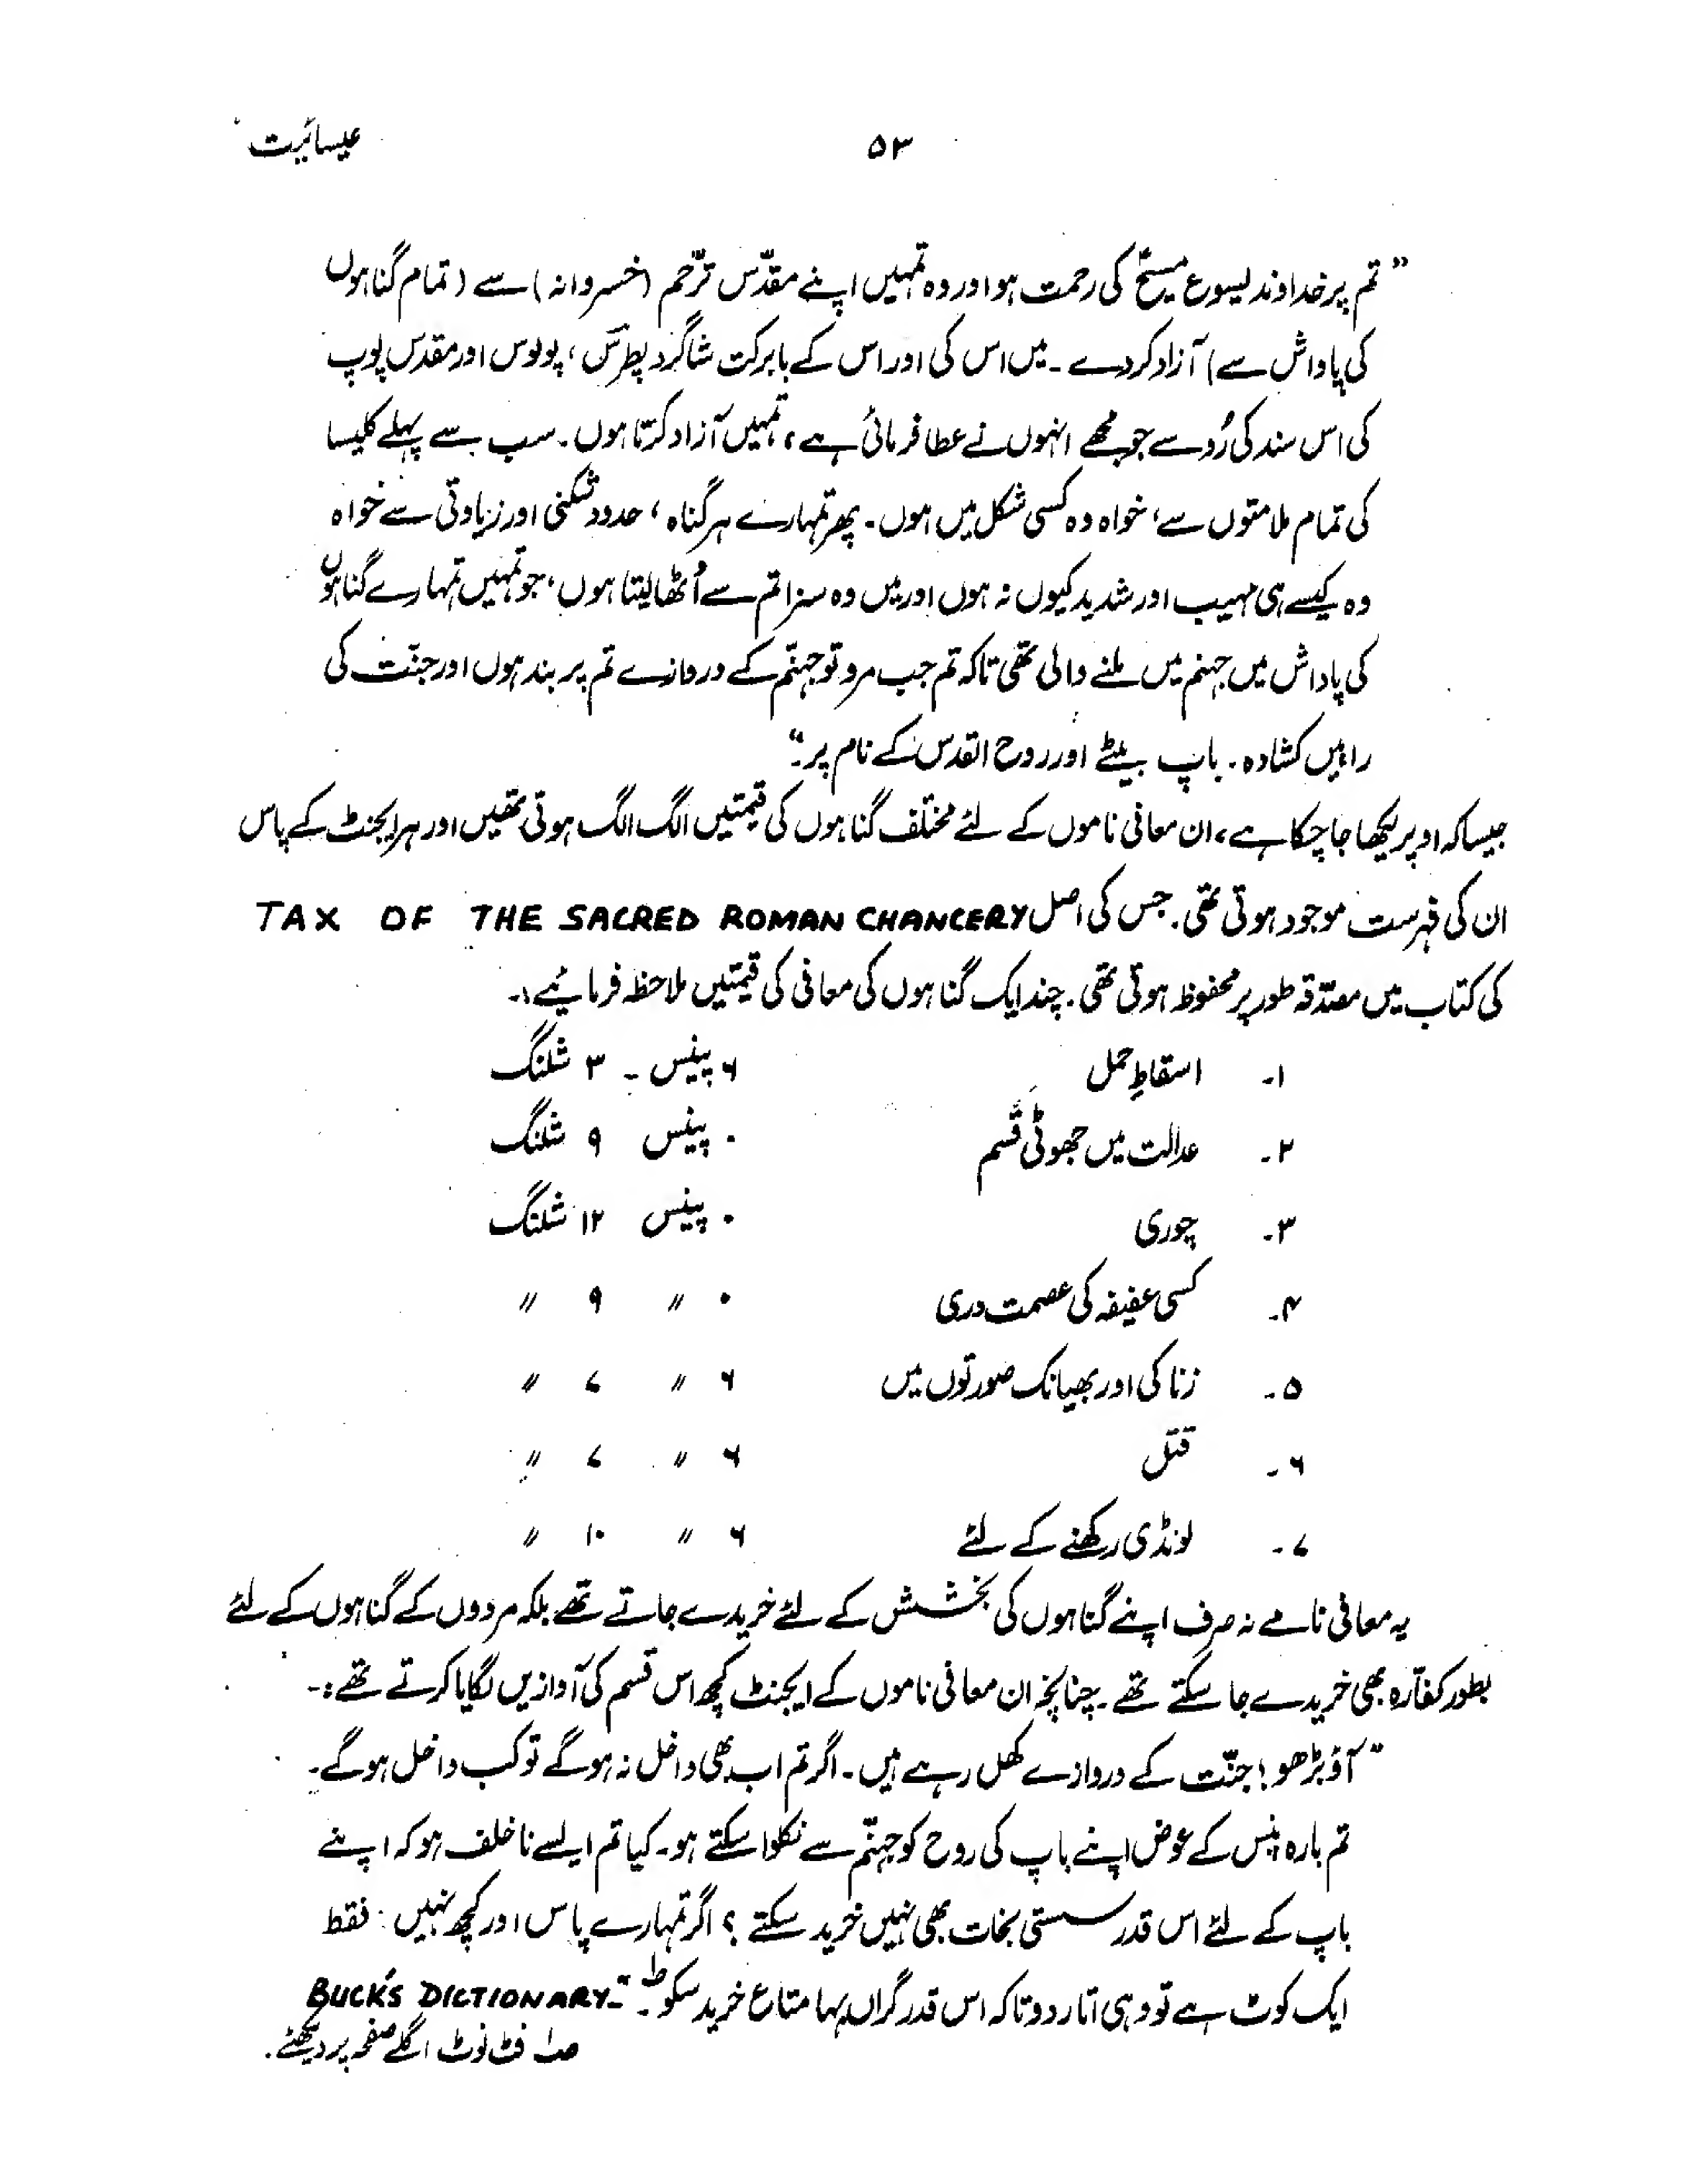 عیسائیت
۵۳
”تم پر خداوند یسوع مسیحؑ کی رحمت ہو اور وہ تمہیں اپنے مقدّس ترّحم (خسروانہ) سے (تمام گناہوں
کی پاداش سے) آزاد کر دے ۔ میں اس کی اور اس کے بابرکت شاگرد پطرس، پولوس اور مقدس پوپ
کی اس سند کی رُو سے جو مجھے انہوں نے عطا فرمائی ہے، تمہیں آزاد کرتا ہوں ۔ سب سے پہلے کلیسا
کی تمام ملامتوں سے، خواہ وہ کسی شکل میں ہوں ۔ پھر تمہارے ہر گناہ، حدود شکنی اور زیادتی سے خواہ
وہ کیسے ہی مہیب اور شدید کیوں نہ ہوں اور میں وہ سزا تم سے اُٹھا لیتا ہوں، جو تمہیں تمہارے گناہوں
کی پاداش میں جہنم میں ملنے والی تھی تاکہ تم جب مرو تو جہنّم کے دروازے تم پر بند ہوں اور جنّت کی
راہیں کشادہ ۔ باپ بیٹے اور روح القدس کے نام پر۔“
جیسا کہ اوپر لکھا جا چکا ہے، ان معافی ناموں کے لئے مختلف گناہوں کی قیمتیں الگ الگ ہوتی تھیں اور ہر ایجنٹ کے پاس
ان کی فہرست موجود ہوتی تھی ۔ جس کی اصل TAX OF THE SACRED ROMAN CHANCERY
کی کتاب میں مصدّقہ طور پر محفوظ ہوتی تھی ۔ چند ایک گناہوں کی معافی کی قیمتیں ملاحظہ فرمائیے :۔
۱۔ اسقاطِ حمل ۶ پینس ۔ ۳ شلنگ
۲۔ عدالت میں جھوٹی قسم ۰ پینس ۹ شلنگ
۳۔ چوری ۰ پینس ۱۲ شلنگ
۴۔ کسی عفیفہ کی عصمت دری ۰ 〃 ۹ 〃
۵۔ زنا کی اور بھیانک صورتوں میں ۶ 〃 ۷ 〃
۶۔ قتل ۶ 〃 ۷ 〃
۷۔ لونڈی رکھنے کے لئے ۶ 〃 ۱۰ 〃
یہ معافی نامے نہ صرف اپنے گناہوں کی بخشش کے لئے خریدے جاتے تھے بلکہ مردوں کے گناہوں کے لئے
بطور کفّارہ بھی خریدے جا سکتے تھے ۔ چنانچہ ان معافی ناموں کے ایجنٹ کچھ اس قسم کی آوازیں لگایا کرتے تھے :۔
”آؤ بڑھو! جنّت کے دروازے کھل رہے ہیں ۔ اگر تم اب بھی داخل نہ ہو گے تو کب داخل ہو گے ۔
تم بارہ پنس کے عوض اپنے باپ کی روح کو جہنّم سے نکلوا سکتے ہو ۔ کیا تم ایسے ناخلف ہو کہ اپنے
باپ کے لئے اس قدر سستی نجات بھی نہیں خرید سکتے؟ اگر تمہارے پاس اور کچھ نہیں، فقط
ایک کوٹ ہے تو وہی اتار دو تاکہ اس قدر گراں بہا متاع خرید سکو ۔“ BUCK'S DICTIONARY
فٹ نوٹ اگلے صفحہ پر دیکھئے ۔